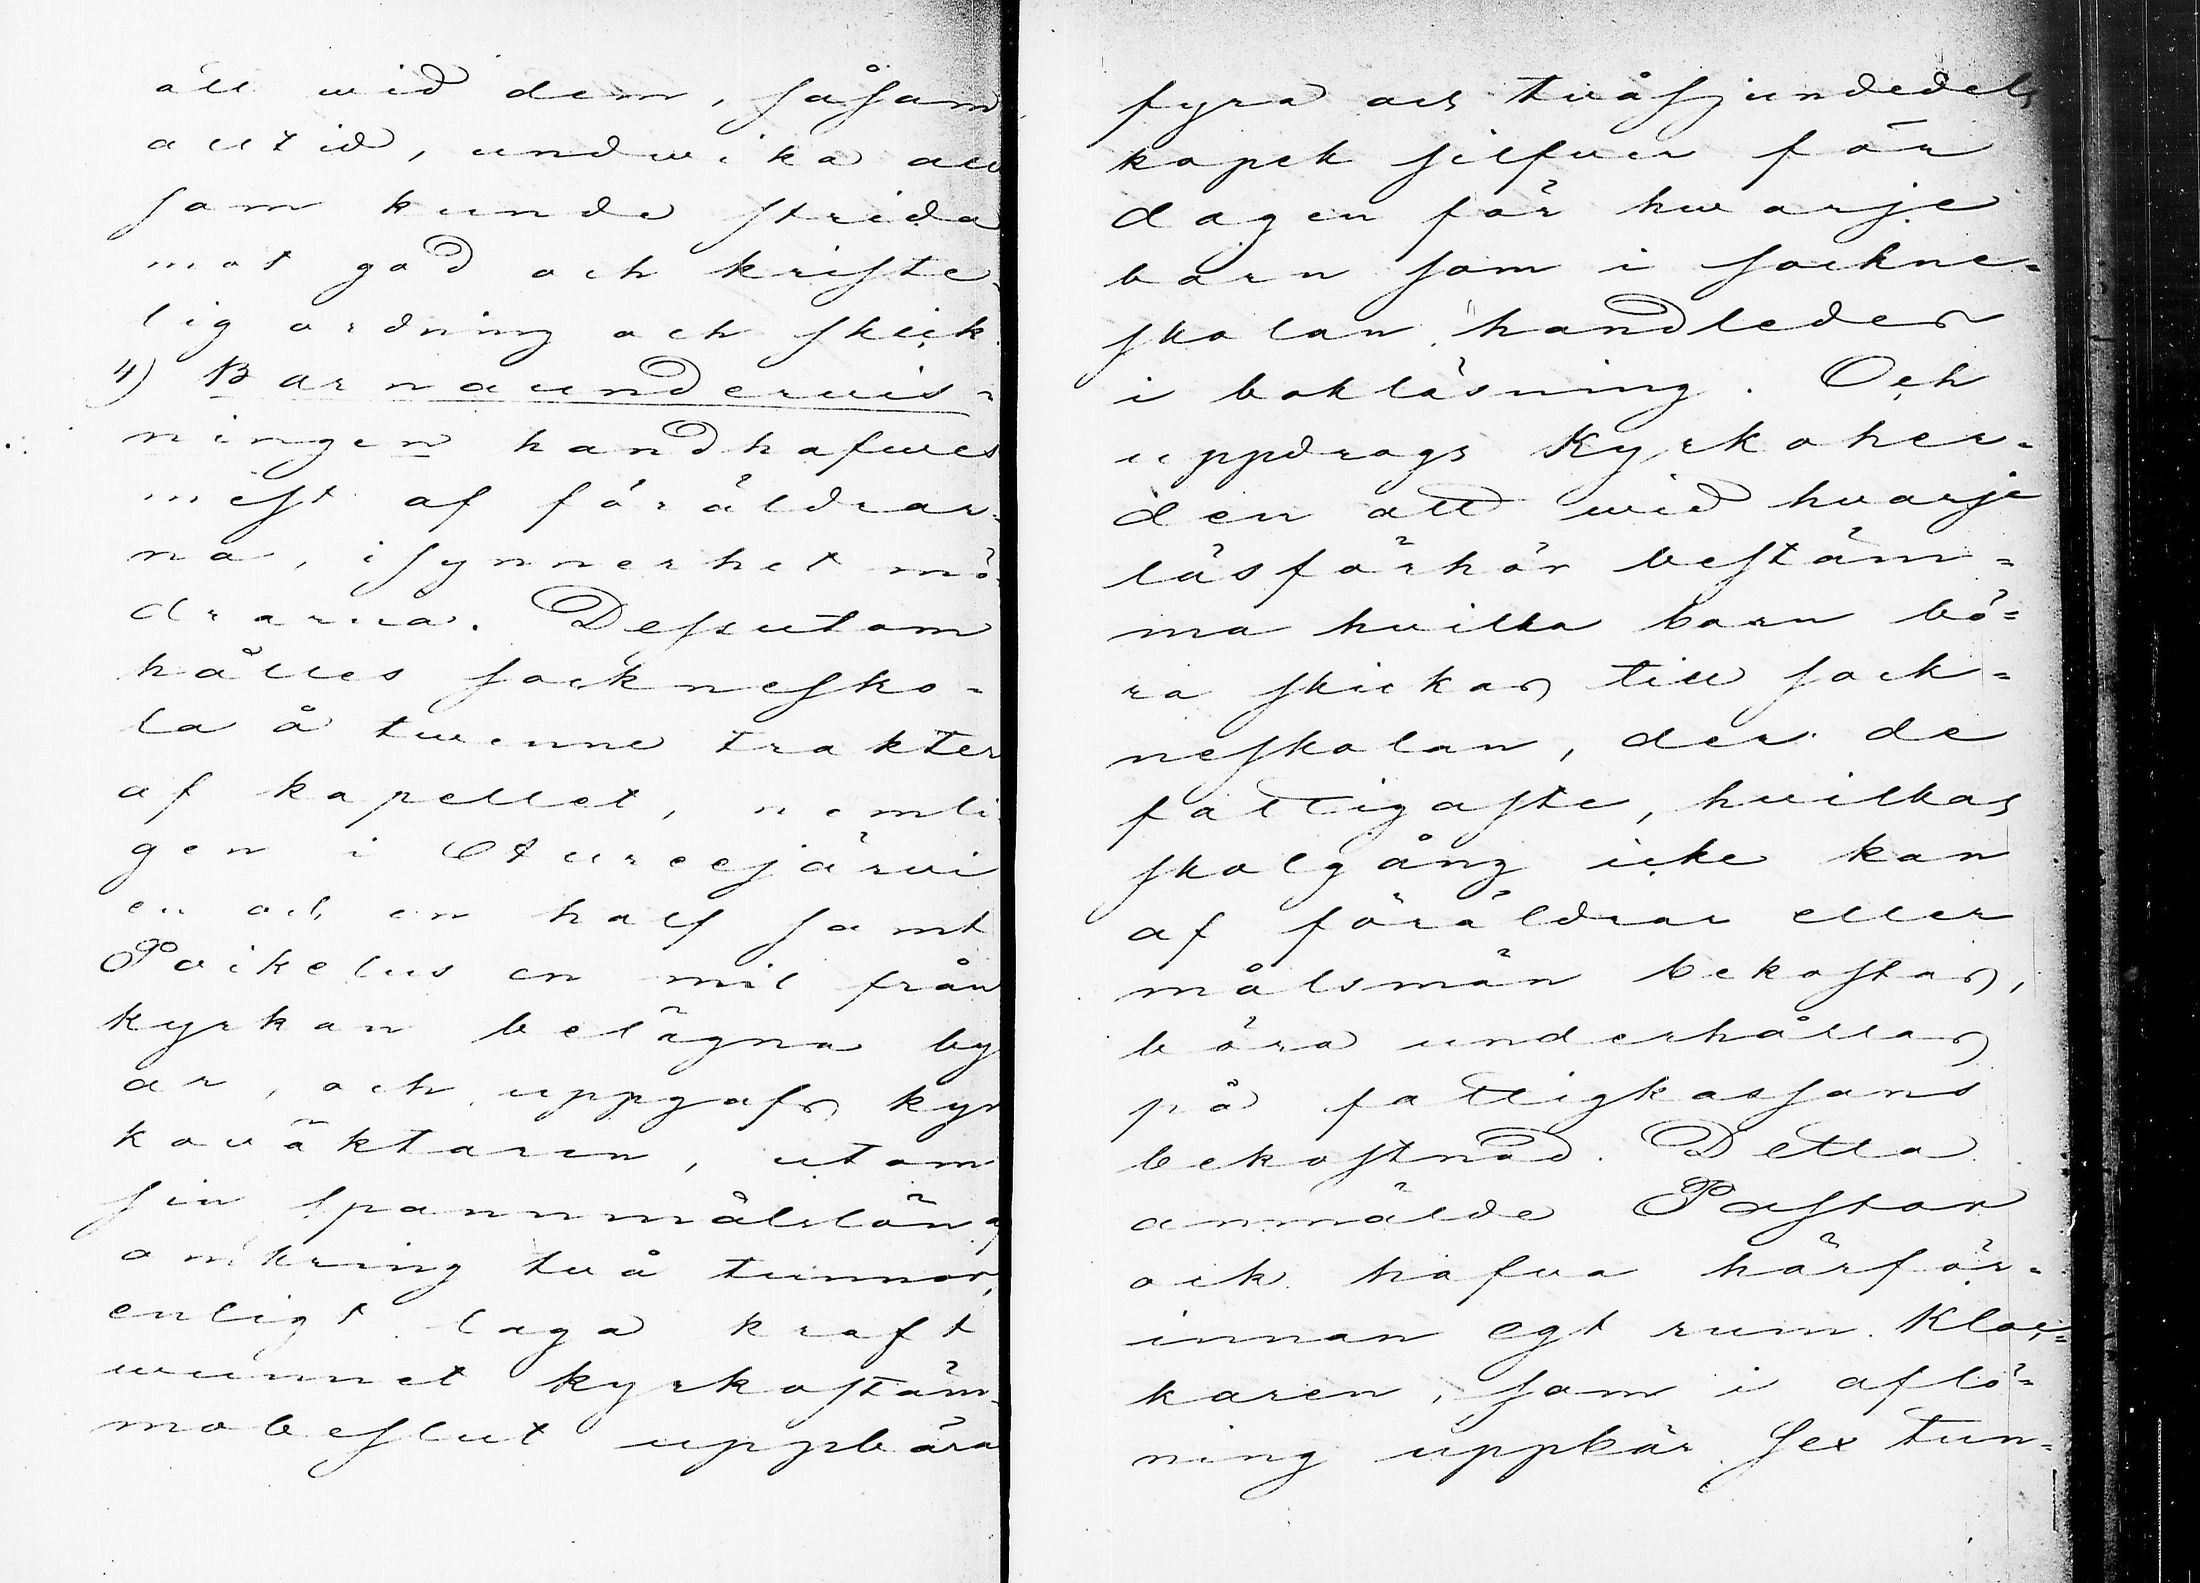 att wid dem, såsom
alltid, undwika allt
som kunde strida
mot god och kriste-
lig ordning och skick.
4) Barnaunderwis-
ningen handhafwes
mest af föräldrar-
na, isynnerhet mö-
drarna. Dessutom
hålles socknesko-
la å twenne trakter
af kapellet, nemli-
gen i
en och en half samt
Poikelus en mil från
kyrkan belägna by
ar, och uppgafs kyr
kowäktaren, utom
sin spannmålslön af
omkring två tunnor,
enligt laga kraft
wunnet kyrkostäm-
mobeslut uppbära
fyra och tvåsjundedels
kopek silfwer för
dagen för hwarje
barn som i sockne-
skolan handledes
i bokläsning. Och
uppdrogs Kyrkoher-
den att wid hvarje
läsförhör bestäm-
ma hvilka barn bö-
ra skickas till sock-
neskolan, der de
fattigaste, hvilkas
skolgång icke kan
af föräldrar eller
målsmän bekostas,
böra underhållas
på fattigkassans
bekostnad. Detta
anmälde Pastor
ock hafva härför-
innan egt rum. Kloc-
karen, som i aflö-
ning uppbär sex tun-